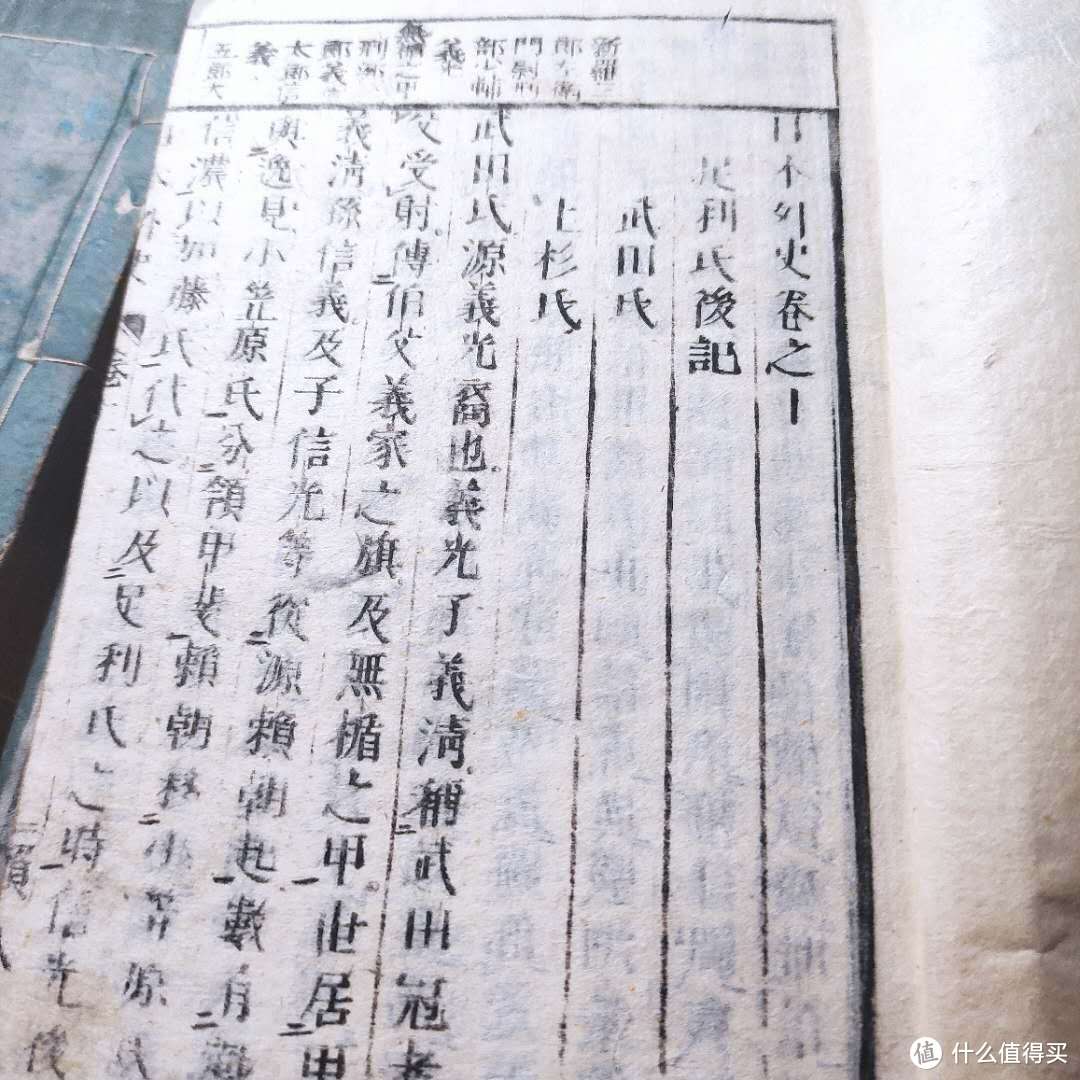 新羅三
郎左衞
門尉刑
部少輔
義光
無楯之甲
刑部
郎義
太郎信
義
五郎大
日本外史卷之十
足利氏後記
武田氏
上杉氏
武田氏源義光裔也義光子義淸稱武田冠者
受射傳伯父義家之旗及無楯之甲世居甲
義淸孫信義及子信光等從源賴朝起數有
與逸見小笠原氏分領甲斐賴朝移小笠原氏
信濃以加藤氏代之以及足利氏之時信光後
值 什么值得买